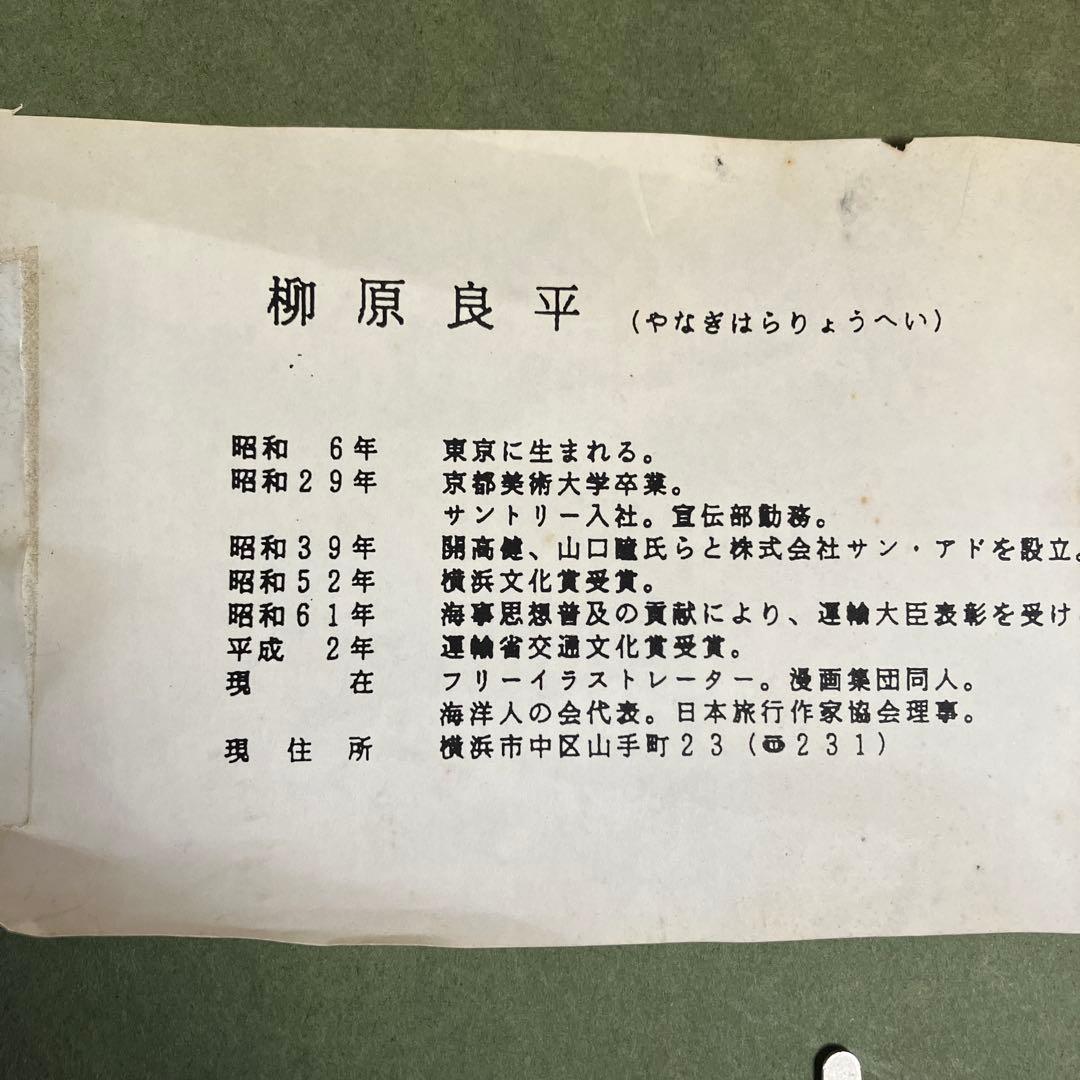 柳原良平 (やなぎはらりょうへい)
昭和 6年 東京に生まれる。
昭和29年 京都美術大学卒業。
サントリー入社。宣伝部勤務。
昭和39年 開高健、山口瞳氏らと株式会社サン・アドを設立。
昭和52年 横浜文化賞受賞。
昭和61年 海事思想普及の貢献により、運輸大臣表彰を受け
平成 2年 運輸省交通文化賞受賞。
現 在 フリーイラストレーター。漫画集団同人。
海洋人の会代表。日本旅行作家協会理事。
現住所 横浜市中区山手町23(〠231)